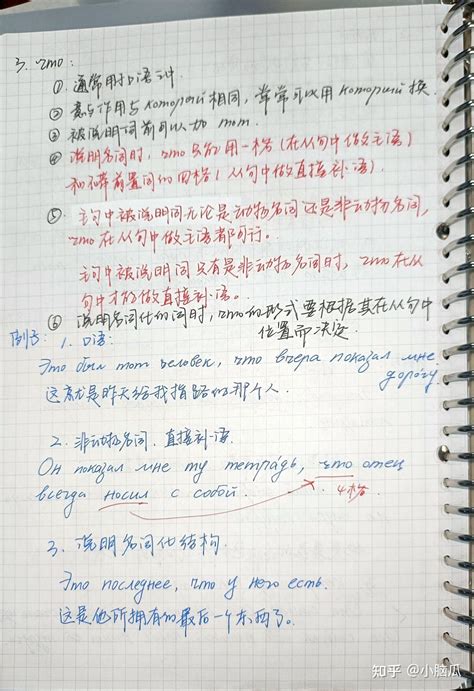 3. что:
① 通常用于口语中.
② 意与作用与который相同, 常常可以用который换.
③ 被说明词前可以加 тот.
④ 说明名词时, что只能用一格(在从句中做主语)
和不带前置词的四格(从句中做直接补语).
⑤ 主句中被说明词无论是动物名词还是非动物名词,
что在从句中做主语都可行。
主句中被说明词只有是非动物名词时, что在从
句中才能做直接补语。
⑥ 说明名词化的词时, что的形式要根据其在从句中
位置而决定.
例子: 1. 口语:
Это был тот человек, что вчера показал мне
дорогу
这就是昨天给我指路的那个人.
2. 非动物名词. 直接补语.
Он показал мне ту тетрадь, что отец
всегда носил с собой.
4格.
3. 说明名词化结构.
Это последнее, что у него есть.
这是他所拥有的最后一个东西了。
知乎 @小脑瓜